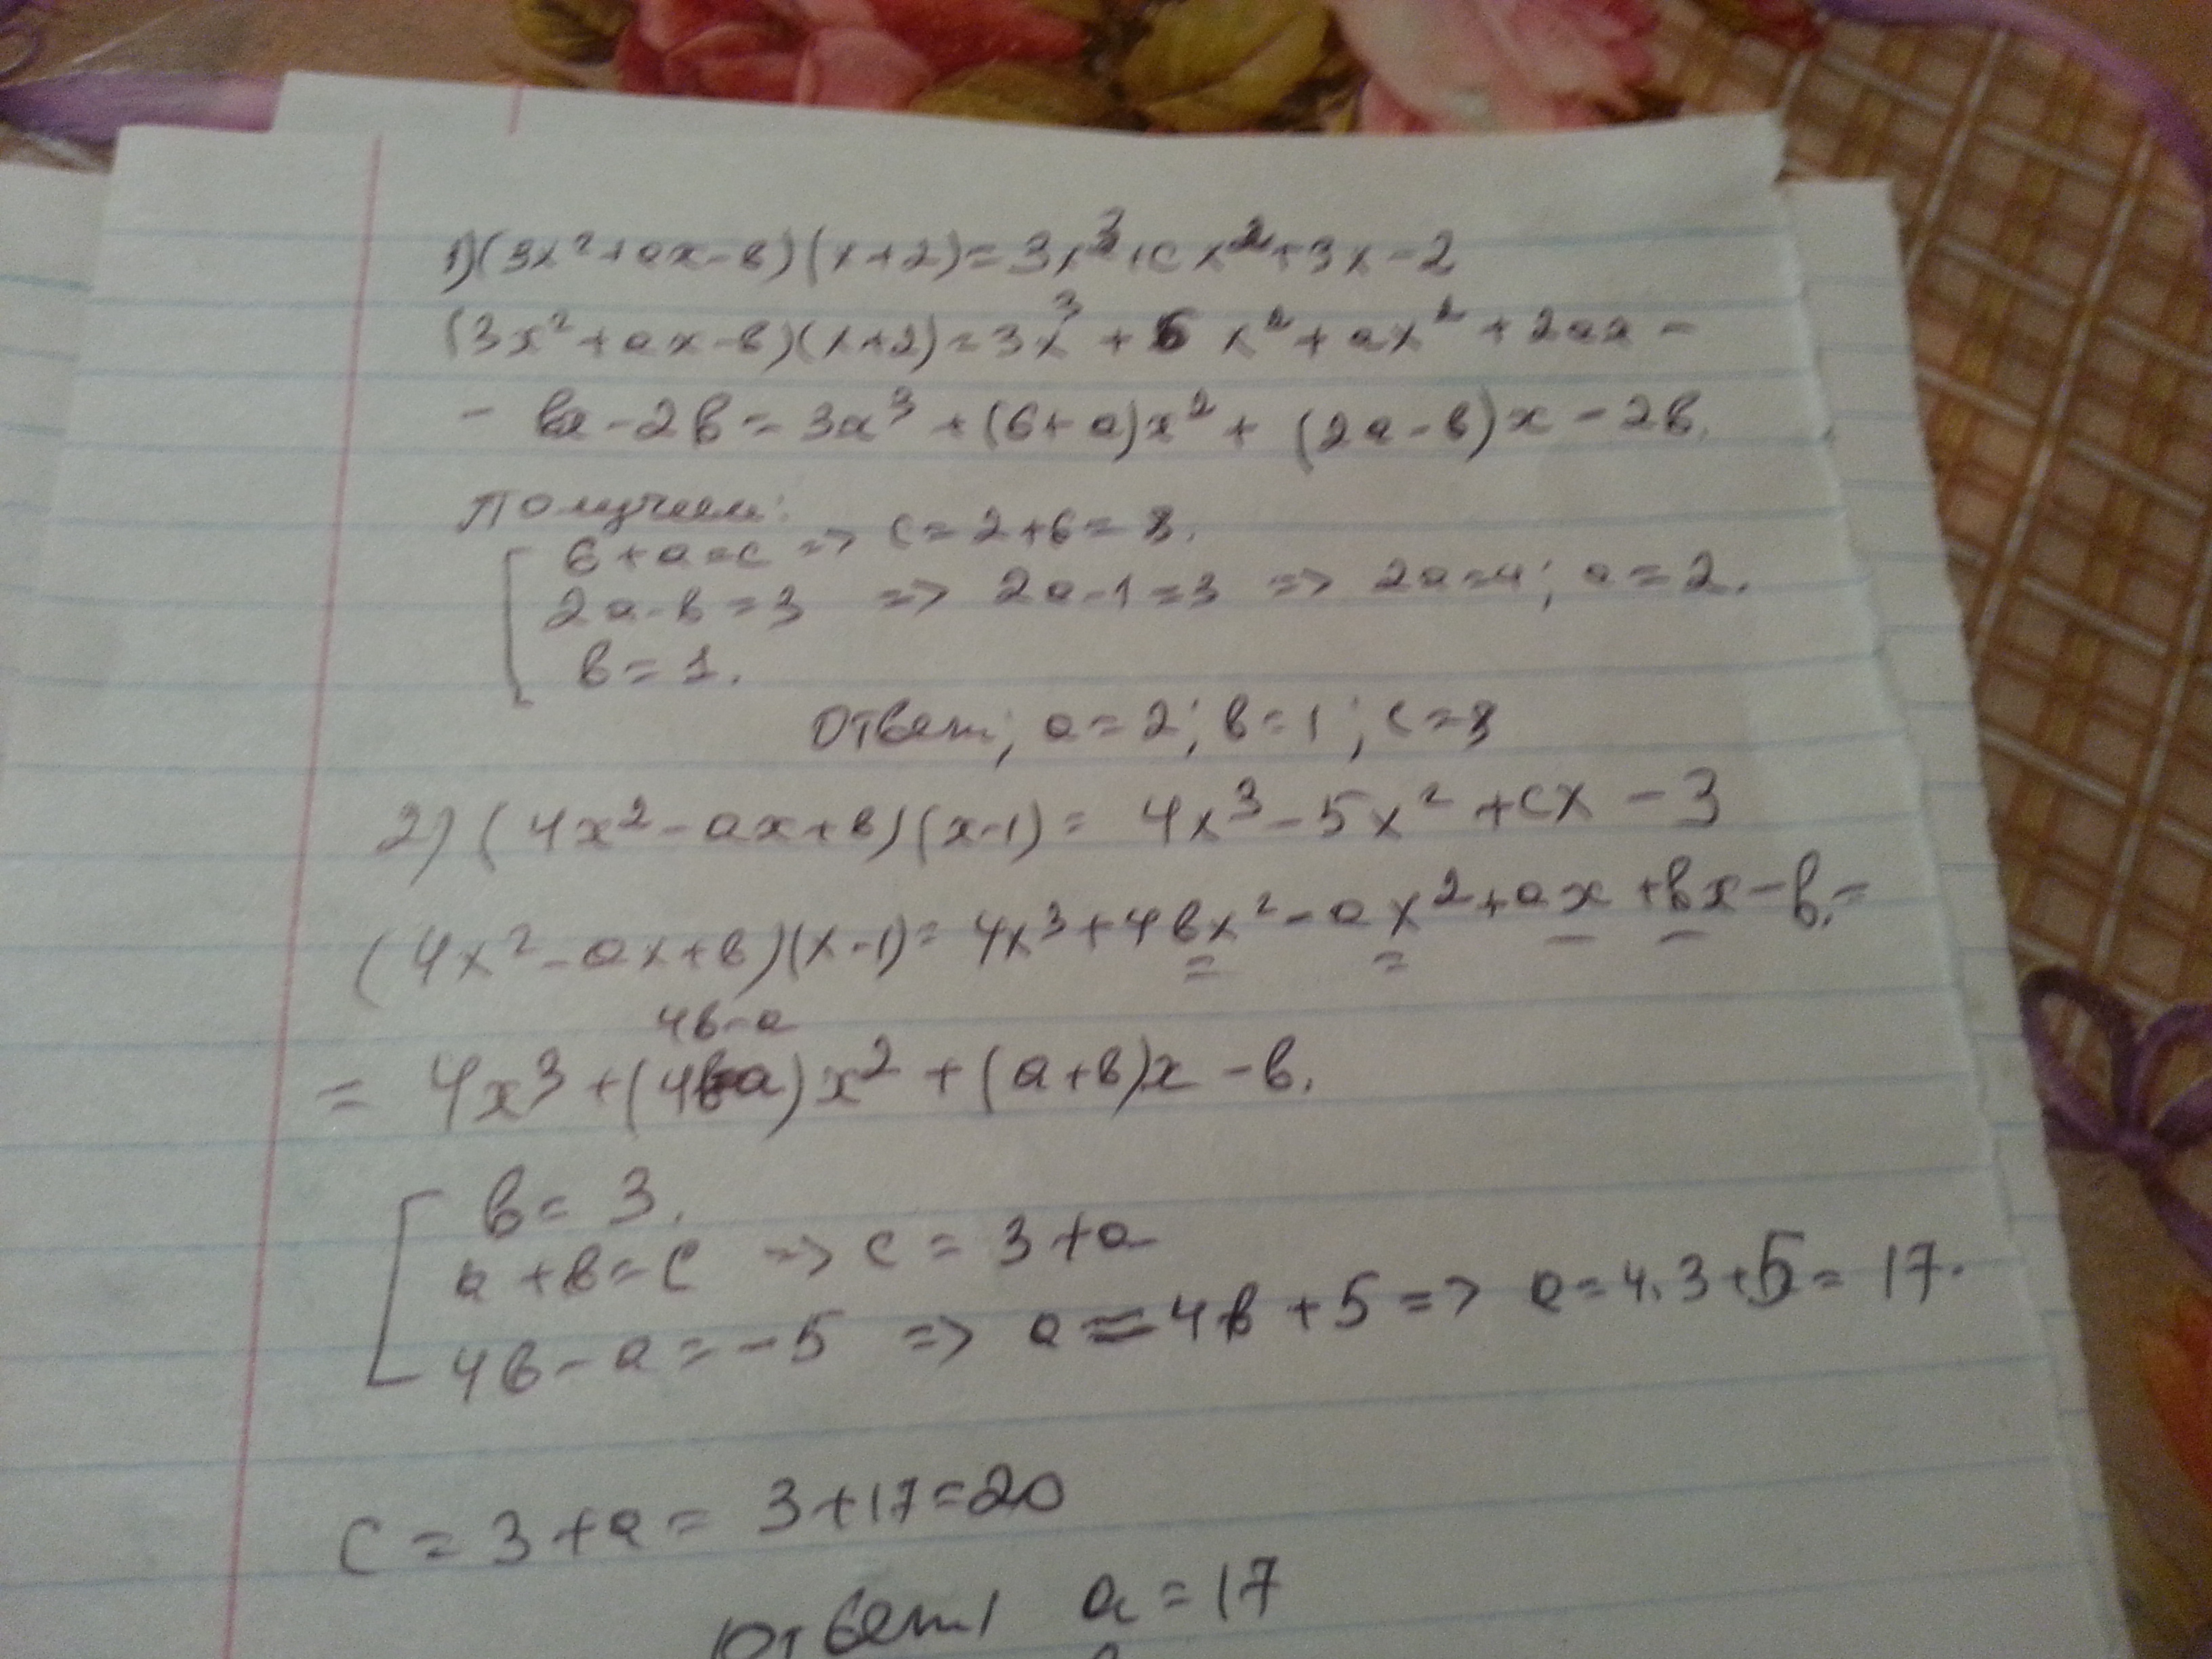 1) (3x² + ax - в)(x + 2) = 3x³ + cx² + 3x - 2
(3x² + ax - в)(x + 2) = 3x³ + 6x² + ax² + 2ax -
- вx - 2в = 3x³ + (6 + a)x² + (2a - в)x - 2в.
Получаем:
6 + a = c => c = 2 + 6 = 8.
2a - в = 3 => 2a - 1 = 3 => 2a = 4; a = 2.
в = 1.
Ответ; a = 2; в = 1; c = 8
2) (4x² - ax + в)(x - 1) = 4x³ - 5x² + cx - 3
(4x² - ax + в)(x - 1) = 4x³ + 4вx² - ax² + ax + вx - в. =
4в - a
= 4x³ + (4в-a)x² + (a + в)x - в.
в = 3.
a + в = c => c = 3 + a
4в - a = -5 => a = 4в + 5 => a = 4.3 + 5 = 17.
c = 3 + a = 3 + 17 = 20
Ответ a = 17